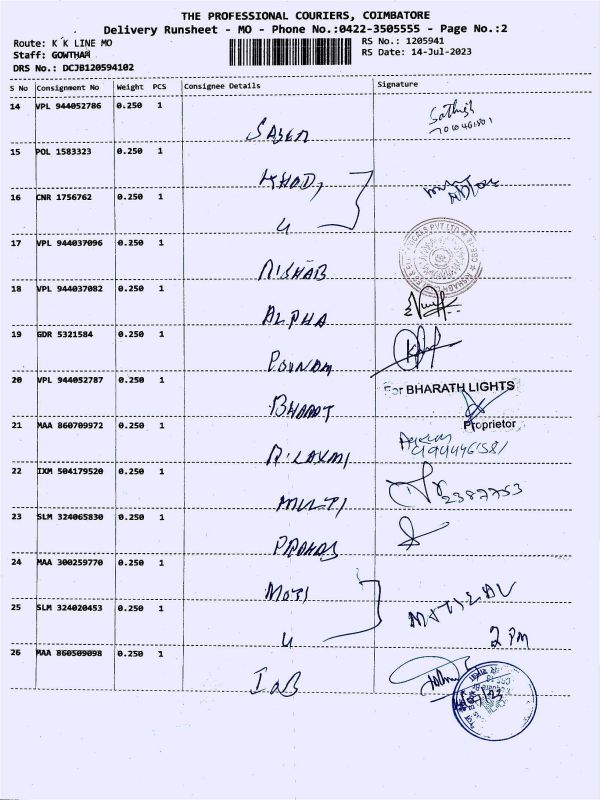 THE PROFESSIONAL COURIERS, COIMBATORE
Delivery Runsheet - MO - Phone No.:0422-3505555 - Page No.:2
Route: K K LINE MO
Staff: GOWTHAM
DRS No.: DCJB120594102
RS No.: 1205941
RS Date: 14-Jul-2023
S No Consignment No Weight PCS Consignee Details Signature
14 VPL 944052786 0.250 1 Sathish
SALEM
15 POL 1583323 0.250 1
KHODI
16 CNR 1756762 0.250 1
17 VPL 944037096 0.250 1
RISHAB
18 VPL 944037082 0.250 1
ALPHA
19 GDR 5321584 0.250 1
POUNDM
20 VPL 944052787 0.250 1
For BHARATH LIGHTS
BHARAT
Proprietor
21 MAA 860709972 0.250 1
RILAXMI
22 IXM 504179520 0.250 1
2387753
MULTI
23 SLM 324065830 0.250 1
24 MAA 300259770 0.250 1
MOTI
25 SLM 324020453 0.250 1
MOTILAL
2 PM
26 MAA 860509098 0.250 1
IOB